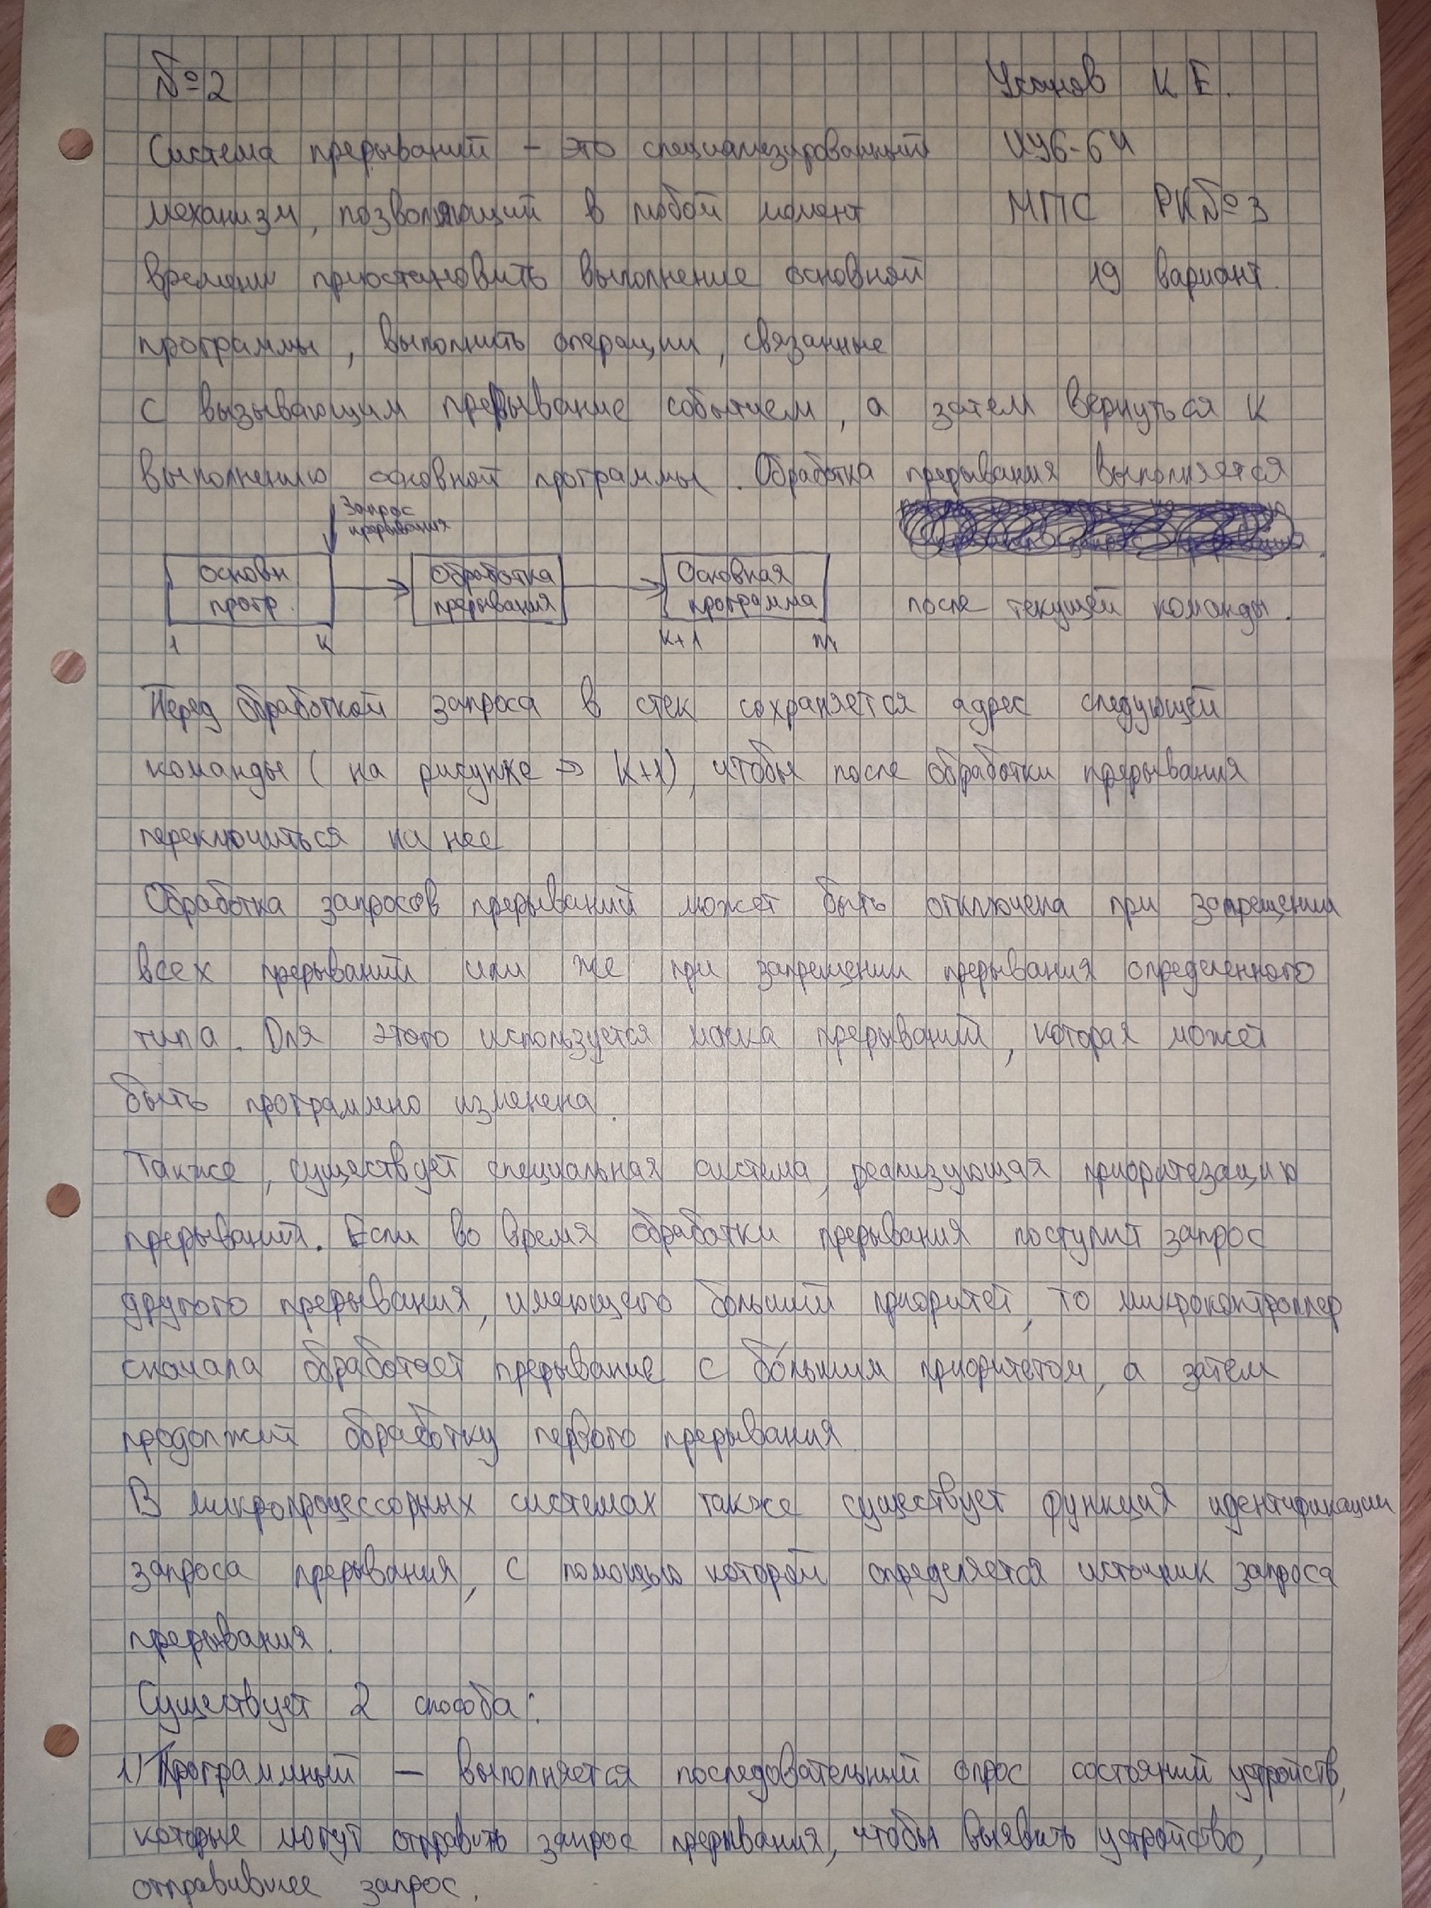 №2
Усанов К Е.
Система прерываний – это специализированный
ИУ6-64
механизм, позволяющий в любой момент
МПС РК№3
времени приостановить выполнение основной
19 вариант.
программы, выполнить операции, связанные
с вызывающим прерывание событием, а затем вернуться к
выполнению основной программы. Обработка прерывания выполняется
Запрос
прерывания
Основн
протр.
Обработка
прерывания
Основная
программа
после текущей команды.
1
к
к+1
Перед обработкой запроса в стек сохраняется адрес следующей
команды (на рисунке → К+1), чтобы после обработки прерывания
переключиться на нее
Обработка запросов прерываний может быть отключена при запрещении
всех прерываний или же при запрещении прерывания определенного
типа. Для этого используется маска прерываний, которая может
быть программно изменена.
Также, существует специальная система, реализующая приоритезацию
прерываний. Если во время обработки прерывания поступит запрос
другого прерывания, имеющего больший приоритет, то микроконтроллер
сначала обработает прерывание с бо́льшим приоритетом, а затем
продолжит обработку первого прерывания.
В микропроцессорных системах также существует функция идентификации
запроса прерывания, с помощью которой определяется источник запроса
прерывания.
Существует 2 способа:
1) Программный – выполняется последовательный опрос состояний устройств,
которые могут отправить запрос прерывания, чтобы выявить устройство,
отправившее запрос.